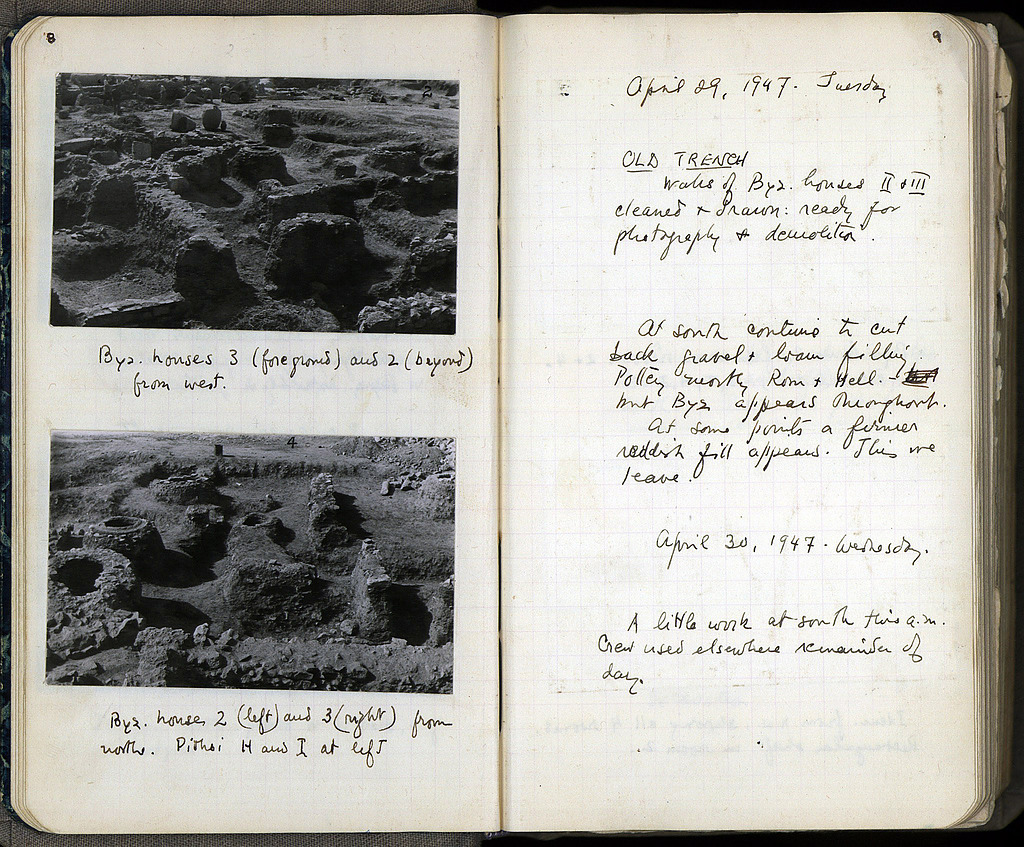 8
2
Byz. houses 3 (foreground) and 2 (beyond)
from west.
4
Byz. houses 2 (left) and 3 (right) from
north. Pithoi H and I at left
9
April 29, 1947. Tuesday
OLD TRENCH
Walls of Byz. houses II + III
cleaned + drawn: ready for
photography + demolition.
At south continue to cut
back gravel + loam filling.
Pottery mostly Rom + Hell. -
but Byz appears throughout.
At some points a firmer
reddish fill appears. This we
leave.
April 30, 1947. Wednesday.
A little work at south this a.m.
Crew used elsewhere remainder of
day.